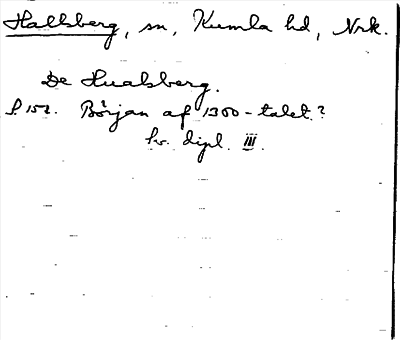 Hallsberg, sn, Kumla hd, Nrk.
De Hualsberg.
S. 152. Början af 1300-talet?
Sv. dipl. III.